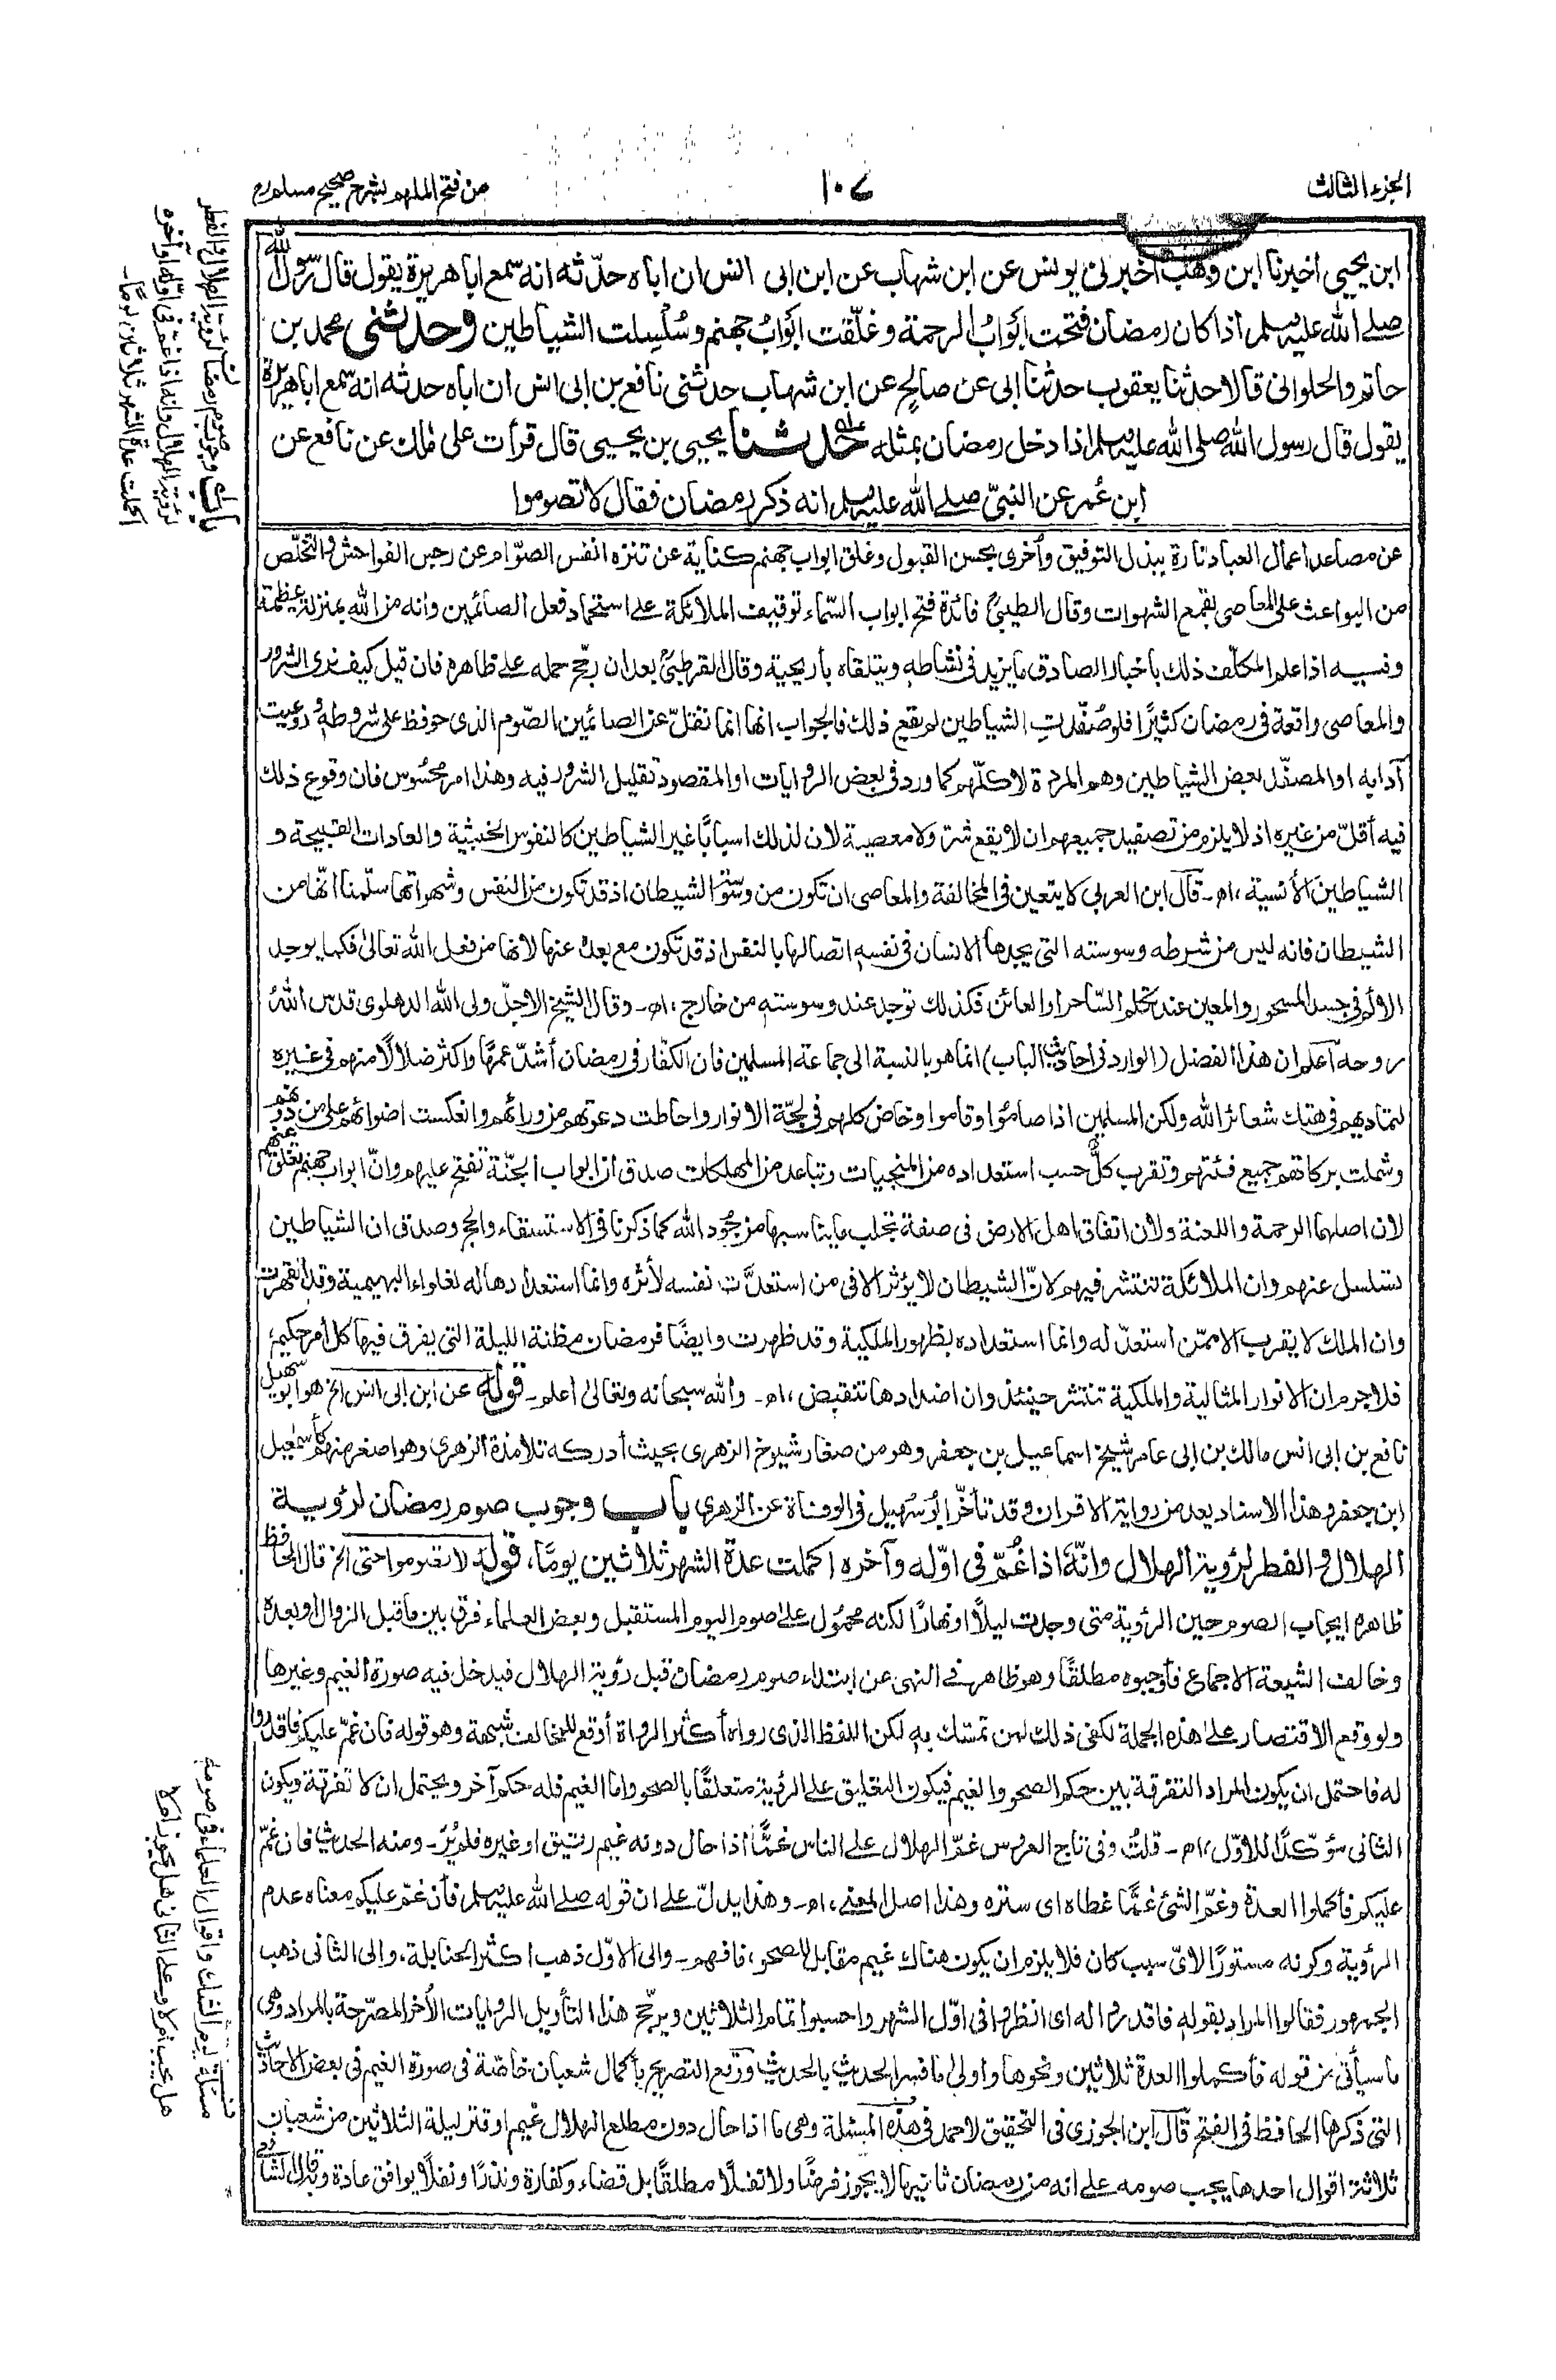 الجزء الثالث
١٠٧
من فتح الملهم بشرح صحيح مسلم
ابن يحيى اخبرنا ابن وهب اخبرنى يونس عن ابن شهاب عن ابن ابى انس ان اباه حدّثه انه سمع ابا هريرة يقول قال رسول الله
صلے الله عليه وسلم اذا كان رمضان فتحت ابوابُ الرحمة وغلّقت ابوابُ جهنم وسُلسِلت الشياطين وحدثنى محمد بن
حاتم والحلوانى قالا حدثنا يعقوب حدثنا ابى عن صالحٍ عن ابن شهاب حدثنى نافع بن ابى انس ان اباه حدثه انه سمع ابا هريرة
يقول قال رسول الله صلى الله عليه وسلم اذا دخل رمضان بمثله حدثنا يحيى بن يحيى قال قرأت على مٰلك عن نافع عن
ابن عُمر عن النبىّ صلے الله عليه وسلم انه ذكر رمضان فقال لا تصوموا
عن مصاعد اعمال العباد تارة ببذل التوفيق وأخرى بحسن القبول وغلق ابواب جهنم كناية عن تنزه انفس الصوّام عن رجس الفواحش والتخلّص
من البواعث على المعاصى بقمع الشهوات وقال الطيبىّ فائدة فتح ابواب السّماء توقيف الملائكة على استحماد فعل الصائمين وانه من الله بمنزلة عظيمة
وفيه اذا علم المكلّف ذلك بأخبار الصادق ما يزيد فى نشاطه ويتلقاه بأريحية وقال القرطبىّ بعد ان رجّح حمله على ظاهره فان قيل كيف نرى الشرور
والمعاصى واقعة فى رمضان كثيرًا فلو صُفّدتِ الشياطين لم يقع ذلك فالجواب انها انما تقلّ عن الصائمين الصّوم الذى حوفظ على شروطه وروعيت
آدابه او المصفّد بعض الشياطين وهم المردة لا كلّهم كما ورد فى بعض الروايات او المقصود تقليل الشرور فيه وهذا امر محسُوس فان وقوع ذلك
فيه أقلّ من غيره اذ لا يلزم من تصفيد جميعهم ان لا يقع شر ولا معصية لان لذلك اسبابًا غير الشياطين كالنفوس الخبيثة والعادات القبيحة و
الشياطين الأنسية ،اه۔ قال ابن العربى لا يتعين فى المخالفة والمعاصى ان تكون من وسوسة الشيطان اذ قد تكون من النفس وشهواتها سلّمنا انّها من
الشيطان فانه ليس من شرطه وسوسته التى يجدها الانسان فى نفسه اتصالها بالنفس اذ قد تكون مع بعده عنها لانها من فعل الله تعالىٰ فكما يوجد
الألم فى جسد المسحور والمعين عند تكلم السّاحر او العائن فكذلك توجد عند وسوسته من خارج ،اه۔ وقال الشيخ الاجلّ ولى الله الدهلوى قدس اللهُ
روحه اعلم ان هذا الفضل (الوارد فى احاديث الباب) انما هو بالنسبة الى جماعة المسلمين فان الكفّار فى رمضان أشدّ عمهًا واكثر ضلالًا منهم فى غيره
لتماديهم فى هتك شعائر الله ولكن المسلمين اذا صاموا وقاموا وخاض كملهم فى لجّة الانوار واحاطت دعوتهم من ورائهم وانعكست اضواؤهم على من دونهم
وشملت بركاتهم جميع فئتهم وتقرب كلٌّ حسب استعداده من المنجيات وتباعد من المهلكات صدق ان ابواب الجنّة تفتح عليهم وانّ ابواب جهنم تغلق عنهم
لان اصلهما الرحمة واللعنة ولأن اتفاق اهل الارض فى صفة تجلب ما يناسبها من جُود الله كما ذكرنا فى الاستسقاء والحج وصدق ان الشياطين
تسلسل عنهم وان الملائكة تنتشر فيهم لانّ الشيطان لا يؤثر الا فى من استعدَّت نفسه لأثره وانما استعدادها له لغلواء البهيمية وقد انقهرت
وان الملك لا يقرب الا ممّن استعدّ له وانما استعداده بظهور الملكية وقد ظهرت وايضًا فرمضان مظنة الليلة التى يفرق فيها كل امر حكيم
فلا جرم ان الانوار المثالية والملكية تنتشر حينئذ وان اضدادها تنقبض ،اه۔ والله سبحانه وتعالىٰ اعلم۔ قوله عن ابن ابى انس الخ هو ابو سهيل
نافع بن ابى انس مالك بن ابى عامر شيخ اسماعيل بن جعفر وهو من صغار شيوخ الزهرى بحيث أدركه تلامذة الزهرى وهو اصغر منهم كاسمٰعيل
ابن جعفر وهذا الاسناد يعد من رواية الاقران وقد تأخّر ابو سُهيل فى الوفاة عن الزهرى باب وجوب صوم رمضان لرؤية
الهلال والفطر لرؤية الهلال وانّه اذا غُمّ فى اوّله وآخره اكملت عدة الشهر ثلاثين يومًا، قوله لا تصوموا حتى الخ قال الحافظ
ظاهره ايجاب الصوم حين الرؤية متى وجدت ليلًا او نهارًا لكنه محمُول على صوم اليوم المستقبل وبعض العلماء فرق بين ما قبل الزوال او بعده
وخالف الشيعة الاجماع فأوجبوه مطلقًا وهو ظاهر فى النهى عن ابتداء صوم رمضان قبل رؤية الهلال فيدخل فيه صورة الغيم وغيرها
ولو وقع الاقتصار على هذه الجملة لكفى ذلك لمن تمسك به لكن اللفظ الذى رواه أكثر الرواة أوقع للمخالف شبهة وهو قوله فان غمّ عليكم فاقدروا
له فاحتمل ان يكون المراد التفرقة بين حكم الصحو والغيم فيكون التعليق على الرؤية متعلقًا بالصحو واما الغيم فله حكم آخر ويحتمل ان لا تفرقة ويكون
الثانى مؤكدًا للاوّل ،اه۔ قلتُ وفى تاج العروس غمّ الهلال على الناس غمًّا اذا حال دونه غيم رقيق او غيره فلم يُرَ۔ ومنه الحديث فان غمّ
عليكم فأكملوا العدة وغمّ الشئ غمًّا غطاه اى ستره وهذا اصل المعنے، اه۔ وهذا يدلّ على ان قوله صلے الله عليه وسلم فأن غمّ عليكم معناه عدم
الرؤية وكونه مستورًا لاىّ سبب كان فلا يلزم ان يكون هناك غيم مقابل للصحو، فافهم۔ والى الاوّل ذهب اكثر الحنابلة، والى الثانى ذهب
الجمهور فقالوا المراد بقوله فاقدروا له اى انظروا فى اوّل الشهر واحسبوا تمام الثلاثين ويرجّح هذا التأويل الروايات الأخر المصرّحة بالمراد وهى
ما سيأتى من قوله فأكملوا العدة ثلاثين ونحوها واولى ما فسر الحديث بالحديث ووقع التصريح بأكمال شعبان خاصّة فى صورة الغيم فى بعض الاحاديث
التى ذكرها الحافظ فى الفتح قال ابن الجوزى فى التحقيق لاحمد فى هذه المسئلة وهى ما اذا حال دون مطلع الهلال غيم او قتر ليلة الثلاثين من شعبان
ثلاثة اقوال احدها يجب صومه على انه من رمضان ثانيها لا يجوز فرضًا ولا نفلًا مطلقًا بل قضاء وكفارة ونذرًا ونفلًا يوافق عادة وبه قال الشافعى
باب وجوب صوم رمضان لرؤية الهلال والفطر
لرؤية الهلال وانه اذا غمّ فى اوّله او آخره
اكملت عدة الشهر ثلاثين يومًا۔
مسئلة يوم الشك واقوال العلماء فى صومه
هل يجب ام لا وعلى الثانى هل يجوز ام لا